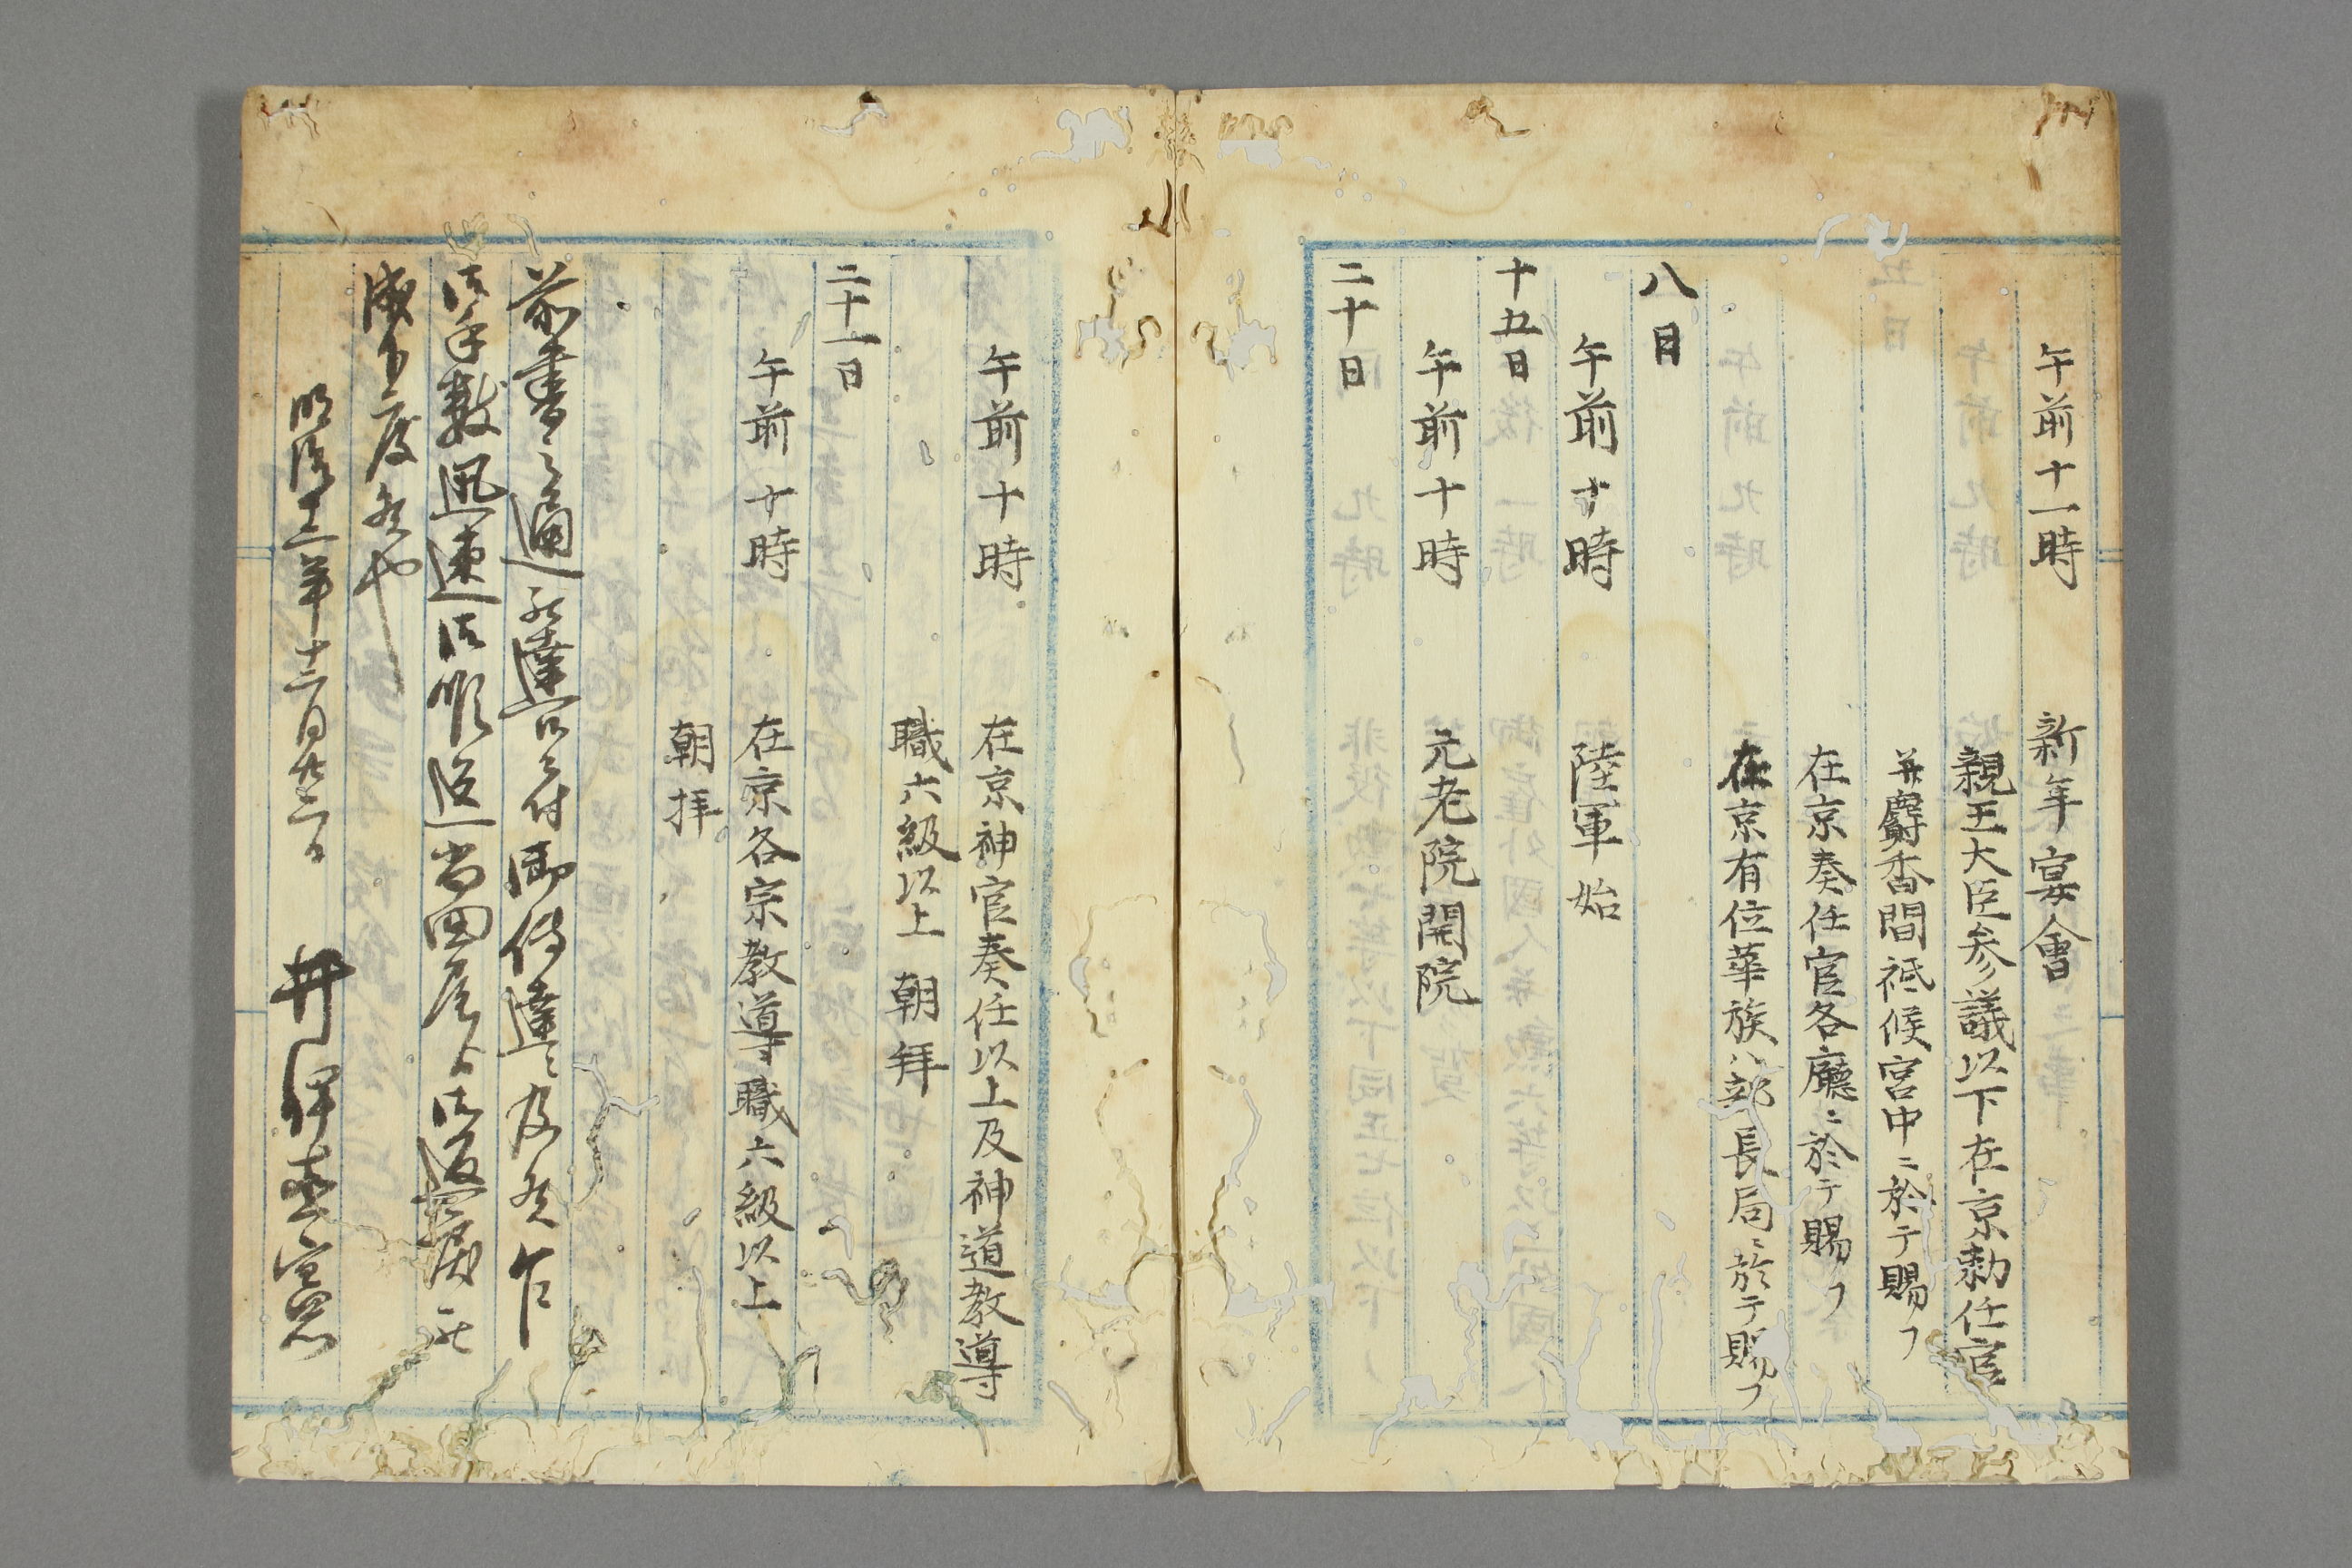 午前十一時　新年宴會
親王大臣参議以下在京勅任官
并麝香間祗候宮中ニ於テ賜フ
在京奏任官各廳ニ於テ賜フ
在京有位華族ハ部長局ニ於テ賜フ
八日
午前十時　陸軍始
十五日
午前十時　元老院開院
二十日
午前十時　在京神官奏任以上及神道教導
職六級以上朝拜
二十一日
午前十時　在京各宗教導職六級以上
朝拝
前書之通被達候ニ付御傳達ニ及候乍
御手数迅速御順達留尾ゟ御返却
成下度候也
明治十一年十二月廿二日　井伊直憲